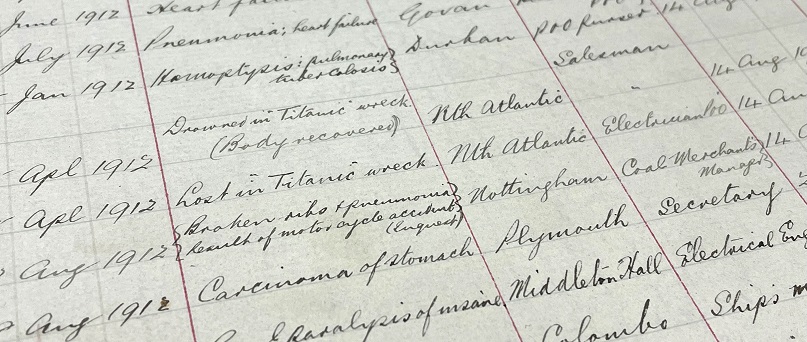 June 1912 Heart fail Govan
July 1912 Pneumonia; heart failure Durban pro Purser 14 Aug
Jan 1912 Hæmoptysis: pulmonary tuberculosis Salesman
Apl 1912 Drowned in Titanic wreck. (Body recovered) Nth Atlantic " 14 Aug
Apl 1912 Lost in Titanic wreck. Nth Atlantic Electrician 14 Aug
Aug 1912 Broken ribs & pneumonia Result of motor cycle accident (Inquest) Nottingham Coal Merchant's Manager 14
Aug 1912 Carcinoma of stomach Plymouth Secretary
paralysis of insane Middleton Hall Electrical Eng
Colombo Ship's